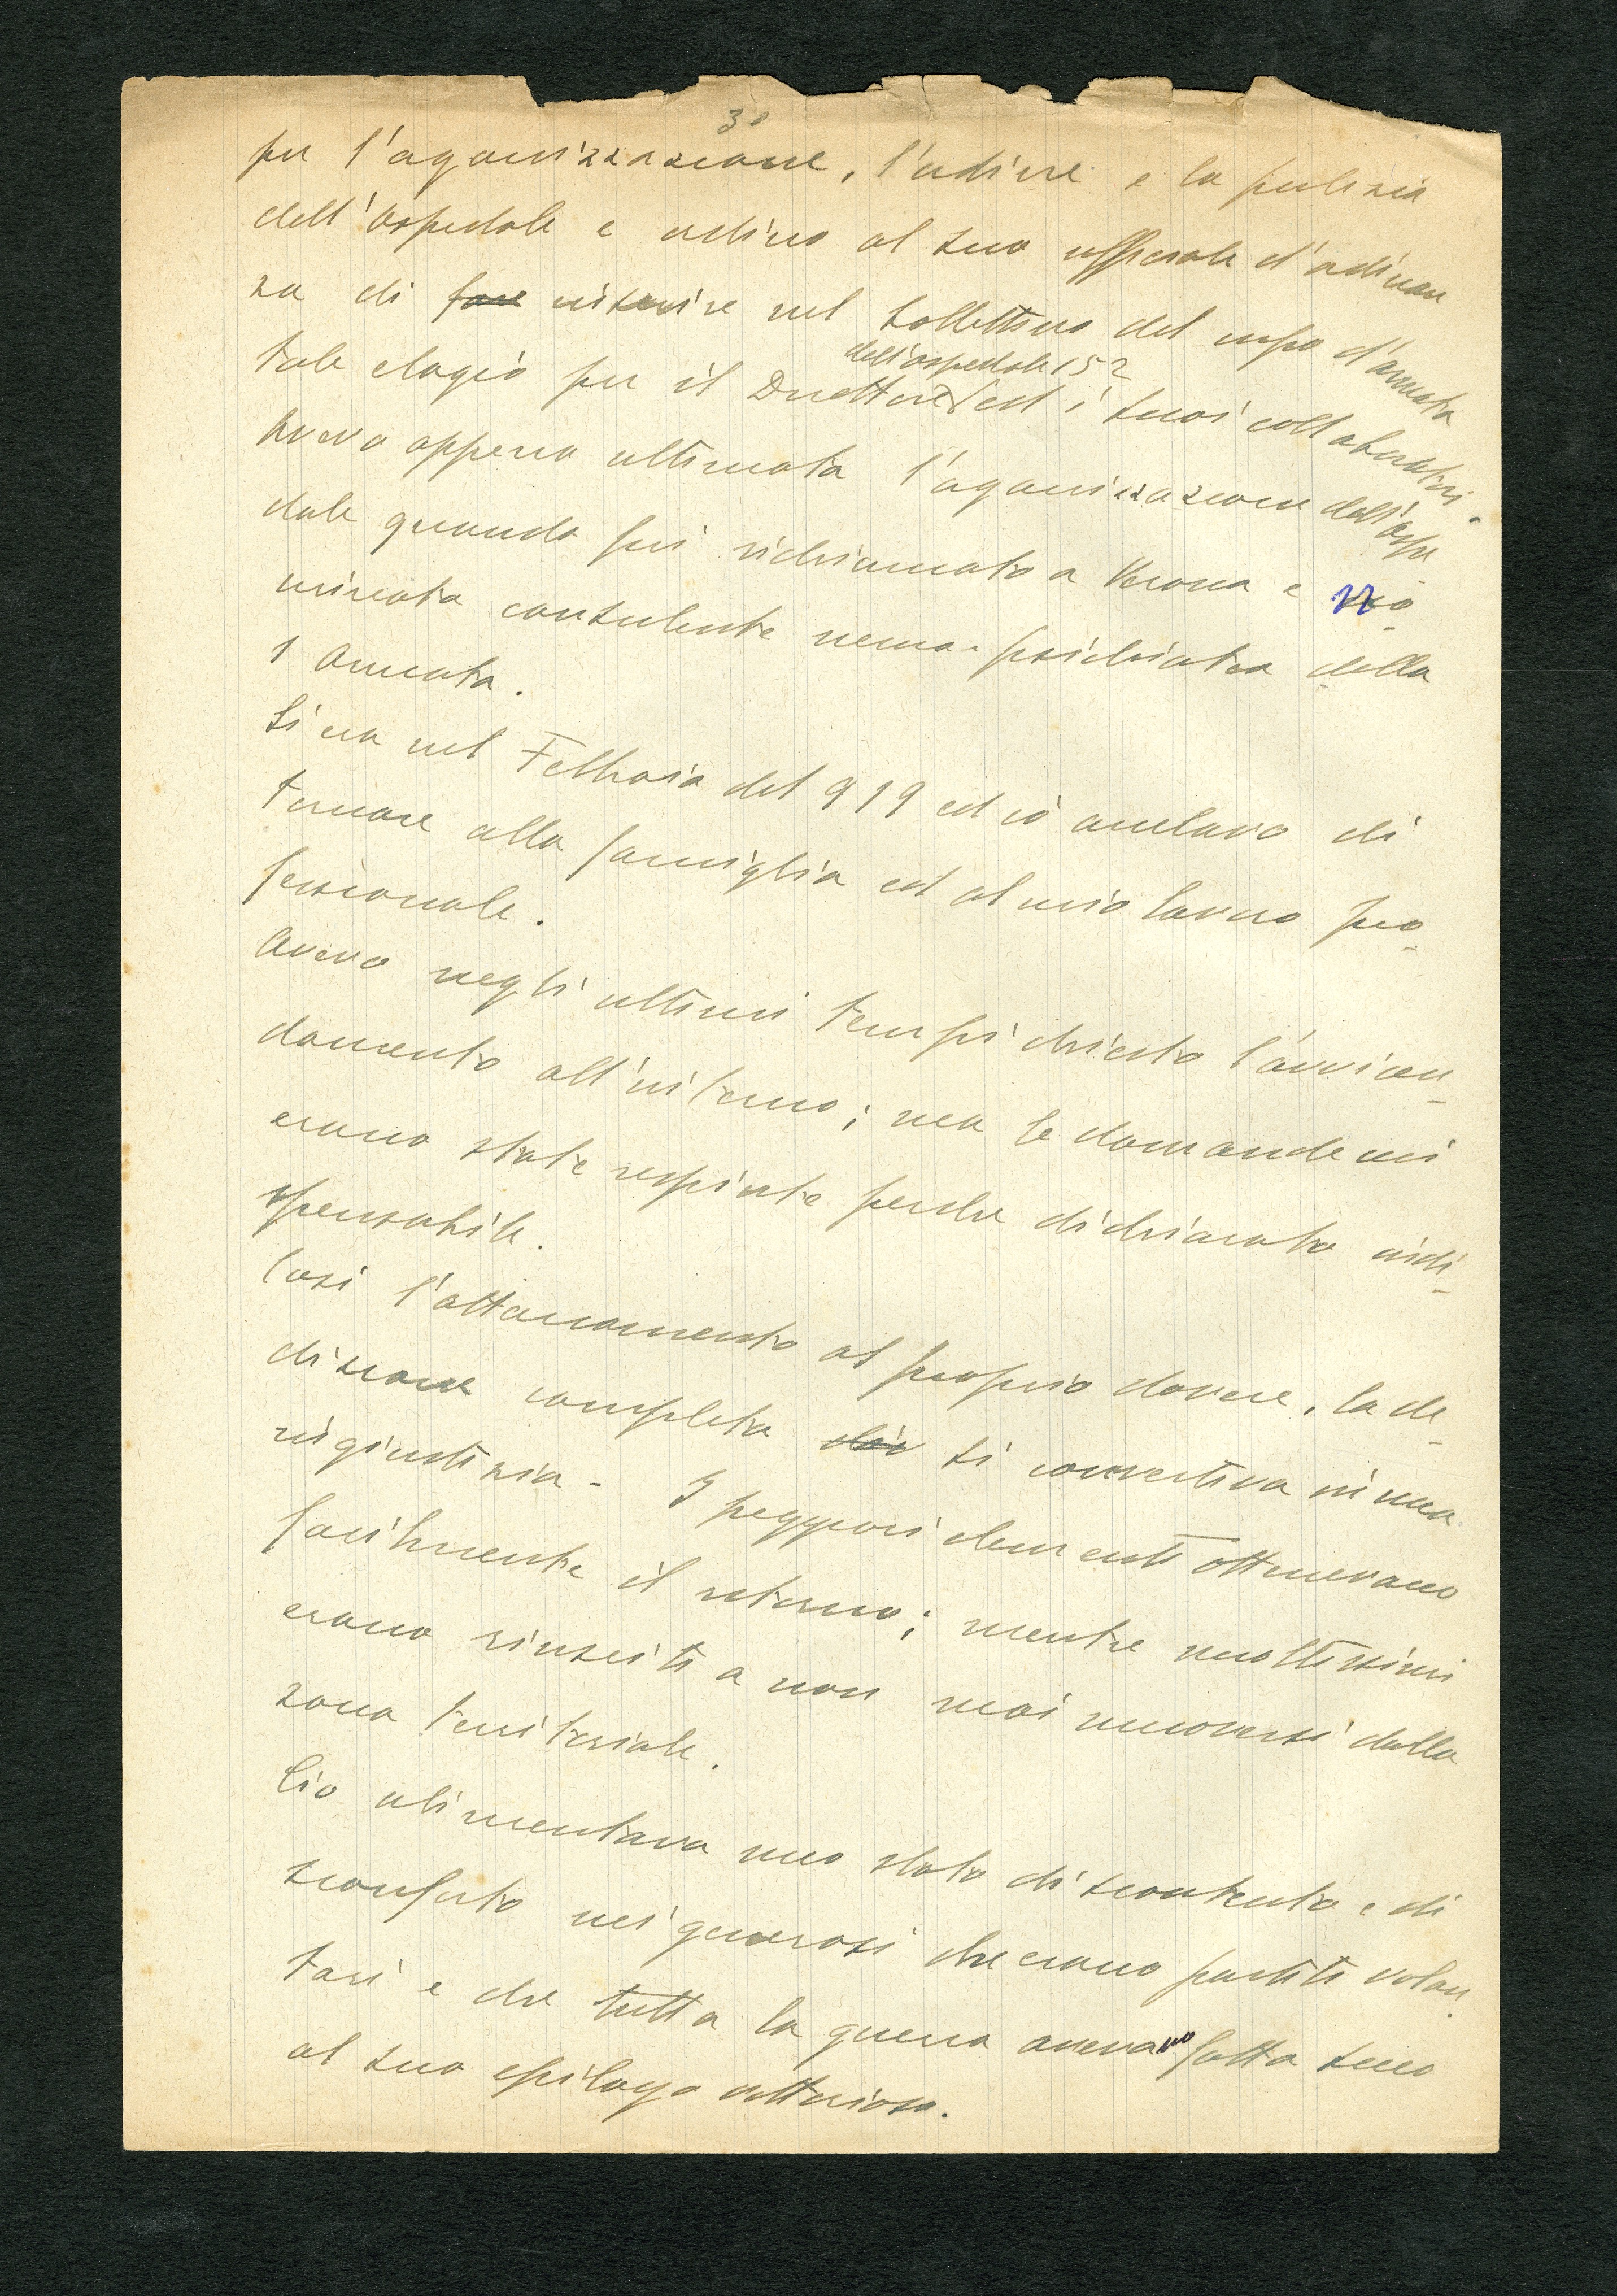 3°
per l'organizzazione, l'ordine e la pulizia
dell'ospedale e ordinò al suo ufficiale d'ordinan
za di fare inserire nel bollettino del corpo d'armata
dell'ospedale 152
tale elogio per il Direttore ed i suoi collaboratori.
Avevo appena ultimata l'organizzazione dell'ospe
dale quando fui richiamato a Verona e no-
minato consulente neuro-psichiatra della
1 Armata.
Si era nel Febbraio del 919 ed io anelavo di
tornare alla famiglia ed al mio lavoro pro-
fessionale.
Avevo negli ultimi tempi chiesto l'avvicen-
damento all'interno; ma le domande mi
erano state respinte perché dichiarato indi-
spensabile.
Così l'attaccamento al proprio dovere, la de-
dizione completa si convertiva in una
ingiustizia - I peggiori elementi ottenevano
facilmente il ritorno; mentre moltissimi
erano riusciti a non mai muoversi dalla
zona territoriale.
Ciò alimentava uno stato di scontento e di
sconforto nei generosi che erano partiti volon-
tari e che tutta la guerra avevano fatta sino
al suo epilogo vittorioso.